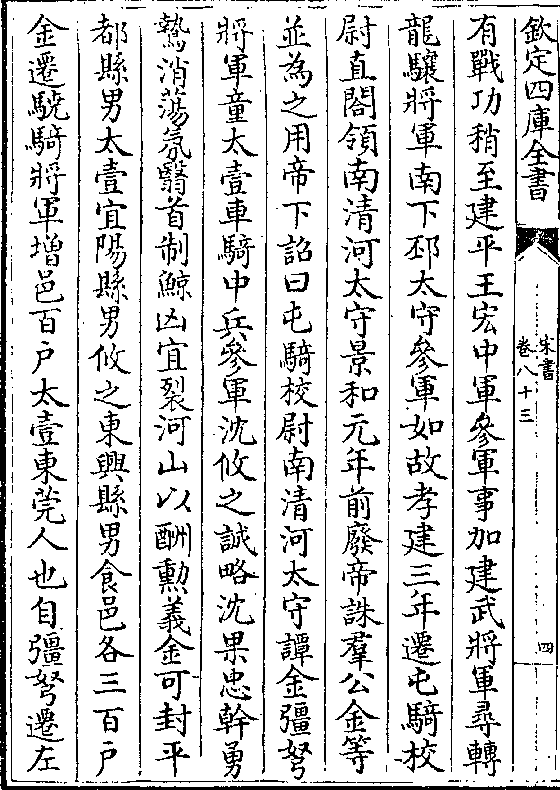 欽定四庫全書
宋書
卷八十三
四
有戰功稍至建平王宏中軍參軍事加建武將軍尋轉
龍驤將軍南下邳太守參軍如故孝建三年遷屯騎校
尉直閤領南清河太守景和元年前廢帝誅羣公金等
並為之用帝下詔曰屯騎校尉南清河太守譚金彊弩
將軍童太壹車騎中兵參軍沈攸之誠略沈果忠幹勇
鷙消蕩氛翳首制鯨凶宜裂河山以酬勲義金可封平
都縣男太壹宜陽縣男攸之東興縣男食邑各三百户
金遷驍騎將軍增邑百户太壹東莞人也自彊弩遷左